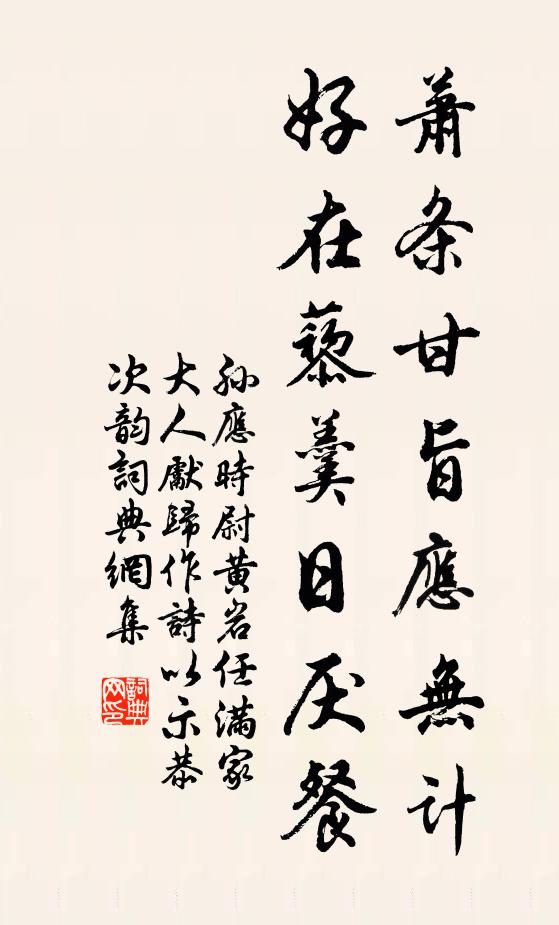 蕭条甘旨應無計
好在藜羹日厌餐
孙應時尉黄岩任滿家
大人勮歸作詩以示恭
次韵詞典網集
詞典
网印